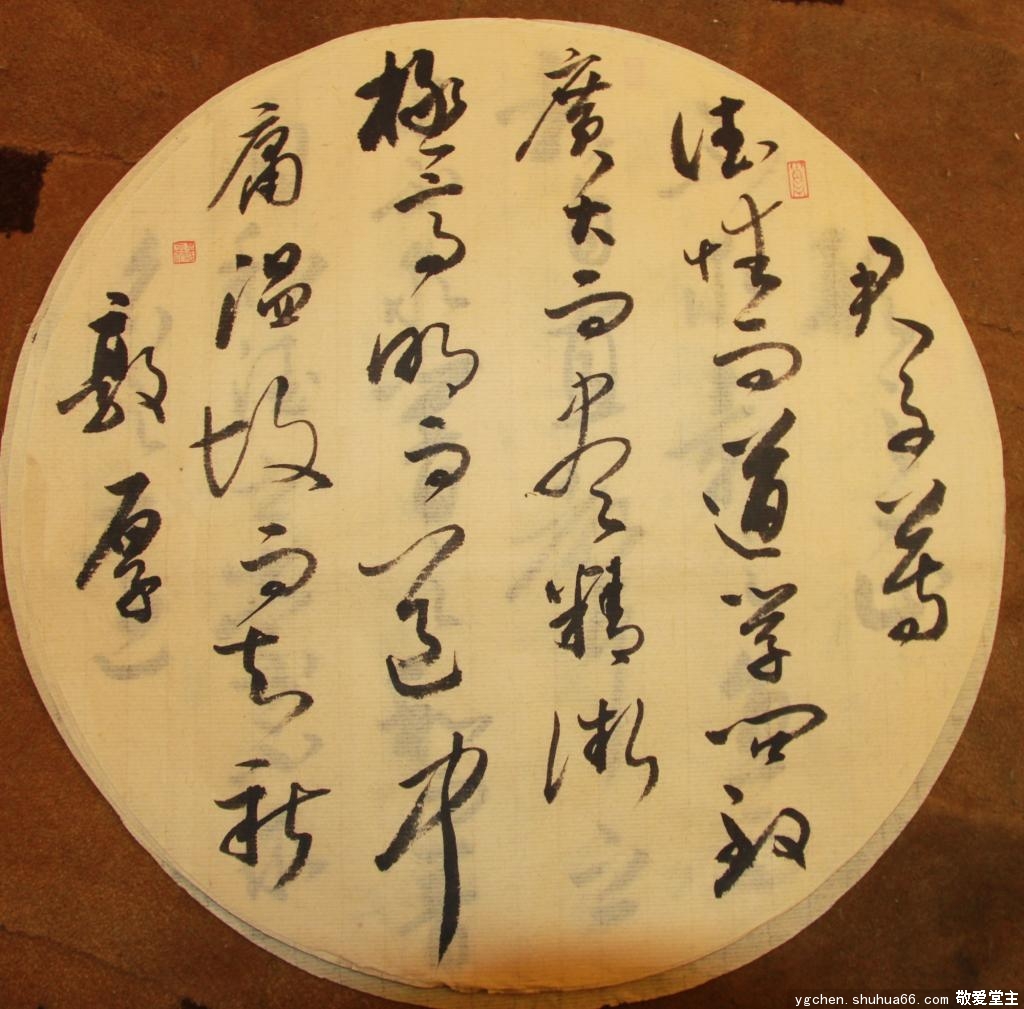 君子尊
德性而道学问致
廣大而尽精微
極高明而道中
庸温故而知新
敦厚
ygchen.shuhua66.com 敬爱堂主